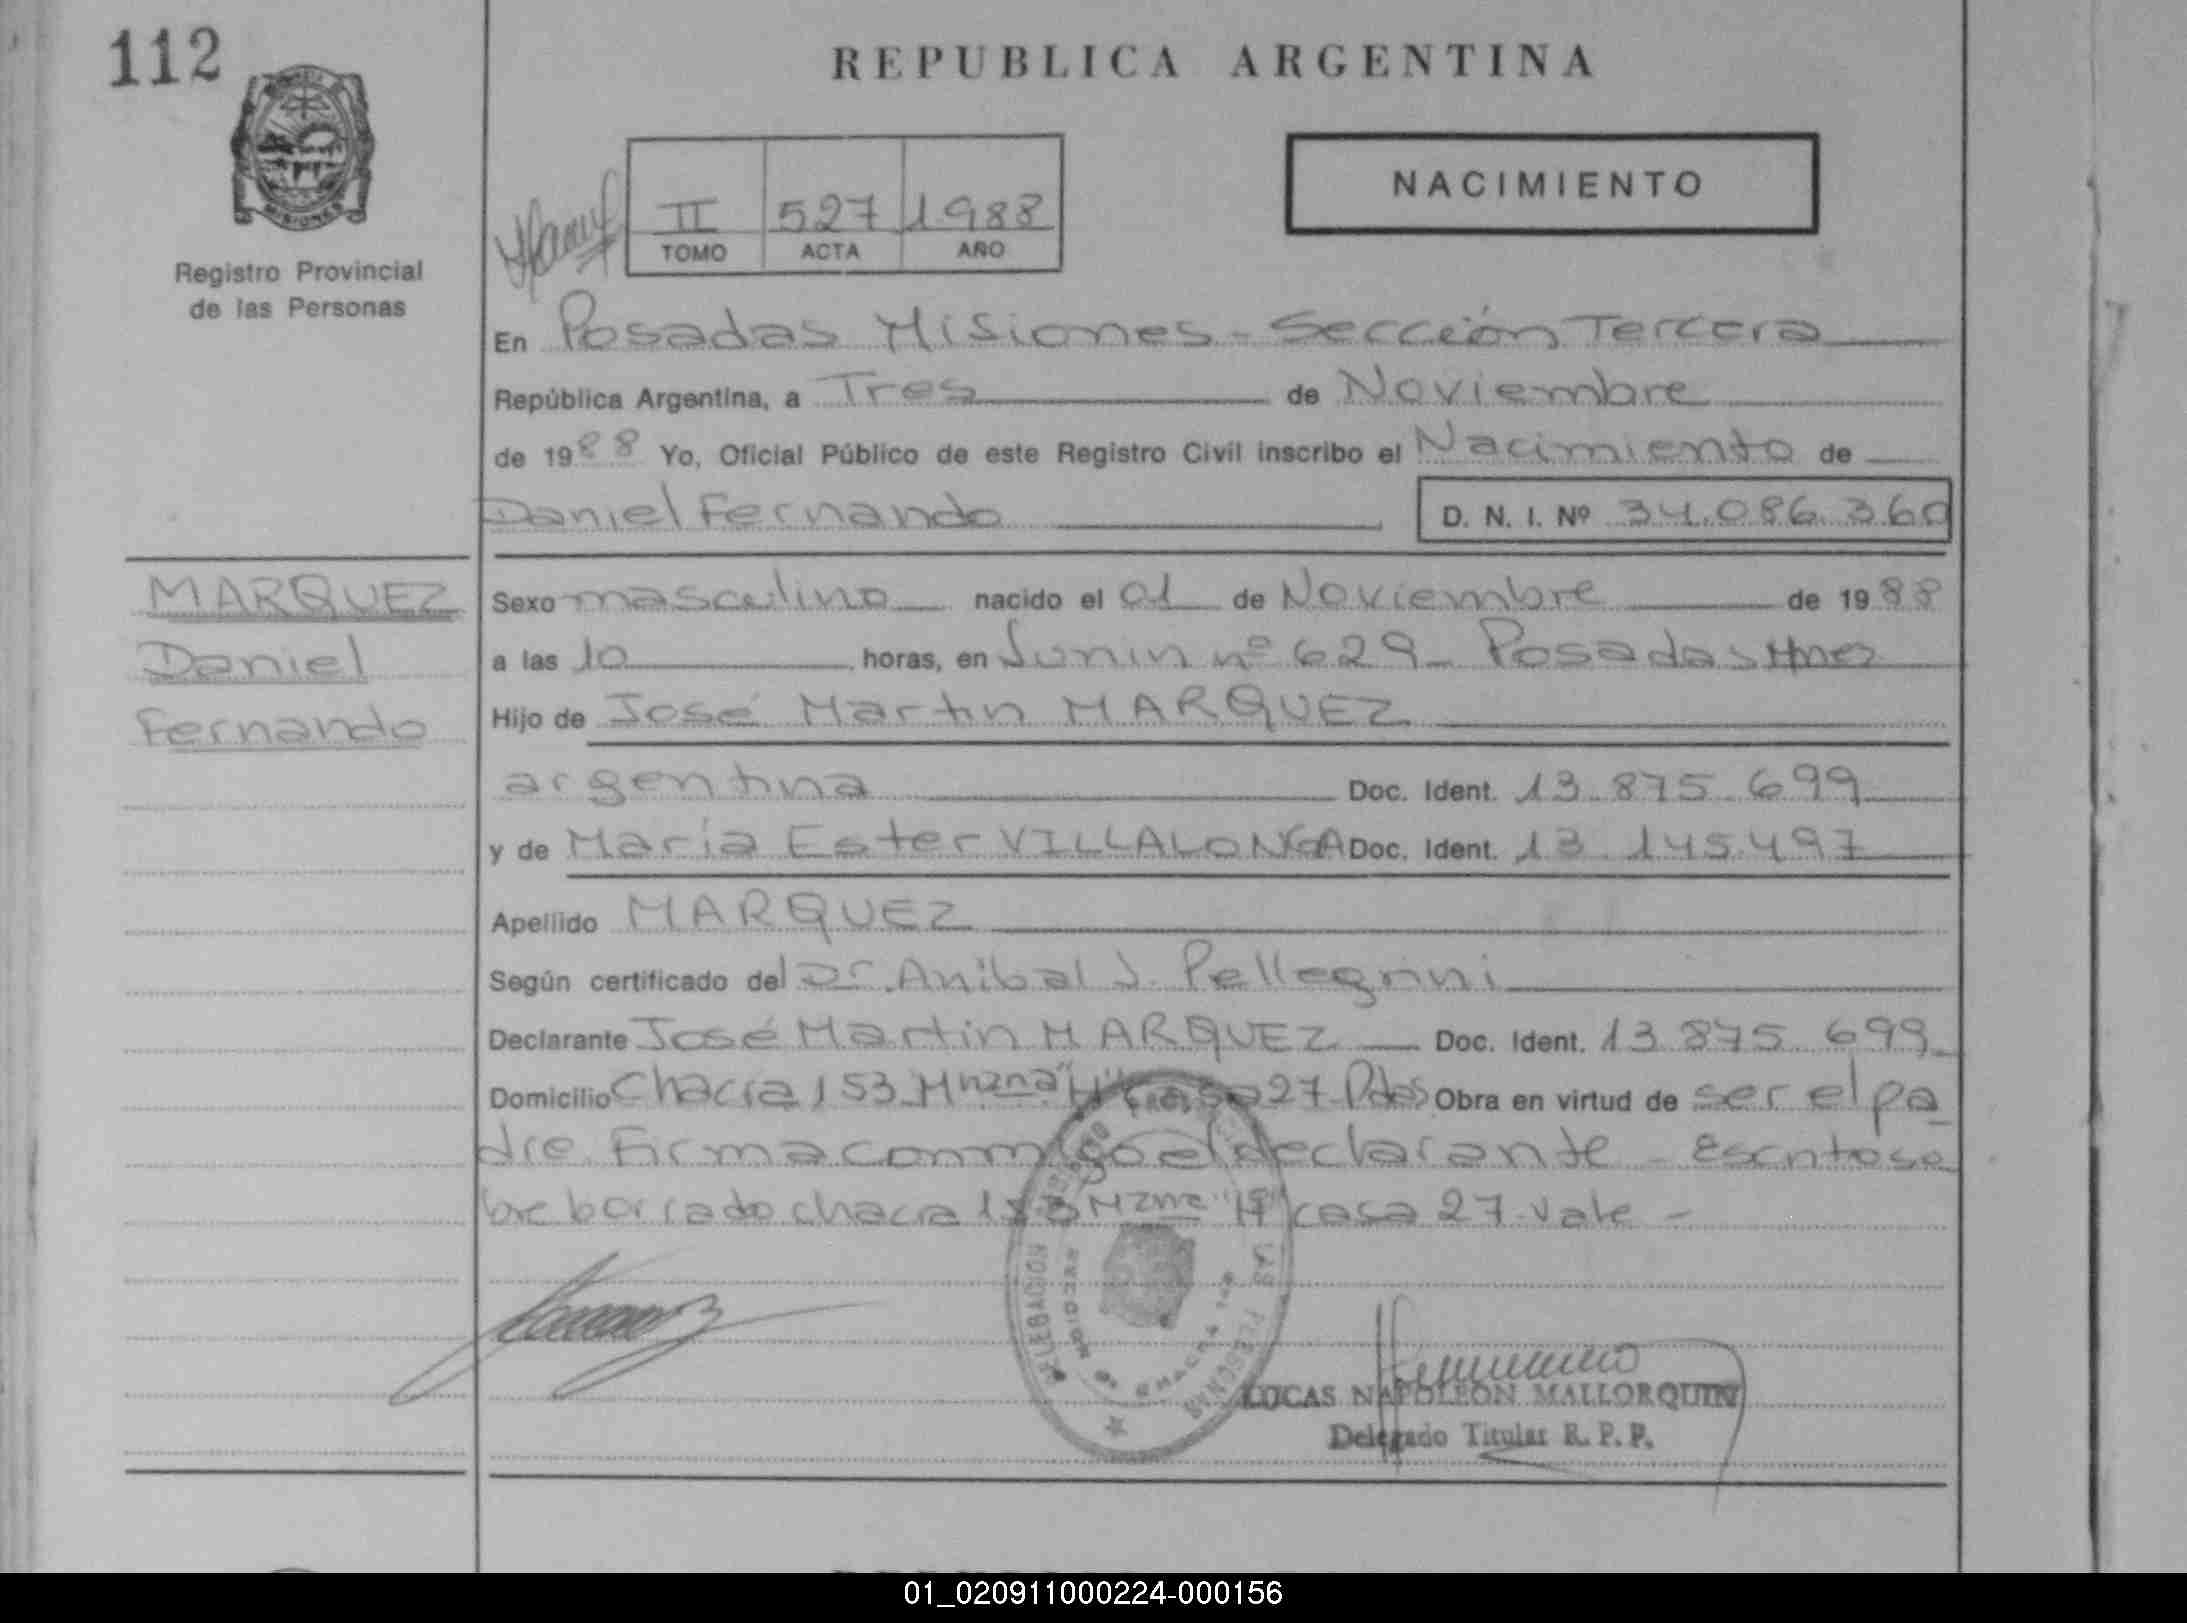 112
REPUBLICA ARGENTINA
MISIONES
Registro Provincial
de las Personas
II 527 1988
TOMO ACTA AÑO
NACIMIENTO
En Posadas Misiones - Sección Tercera
República Argentina, a Tres de Noviembre
de 1988 Yo, Oficial Público de este Registro Civil inscribo el Nacimiento de
Daniel Fernando D. N. I. Nº 34.086.360
MARQUEZ
Daniel
Fernando
Sexo masculino nacido el 01 de Noviembre de 1988
a las 10 horas, en Junin nº 629 - Posadas Mnes
Hijo de José Martin MARQUEZ
argentina Doc. Ident. 13.875.699
y de María Ester VILLALONGA Doc. Ident. 13.145.497
Apellido MARQUEZ
Según certificado del Dr. Anibal J. Pellegrini
Declarante José Martin MARQUEZ Doc. Ident. 13.875.699
Domicilio Chacra 153 Mnzna "H" Casa 27 Pdas Obra en virtud de ser el pa
dre. Firma conmigo el declarante - Escrito so
bre borrado chacra 153 Mzna "H" casa 27. Vale -
DELEGACION
LAS PERSONAS
LUCAS NAPOLEON MALLORQUIN
Delegado Titular R. P. P.
01_020911000224-000156